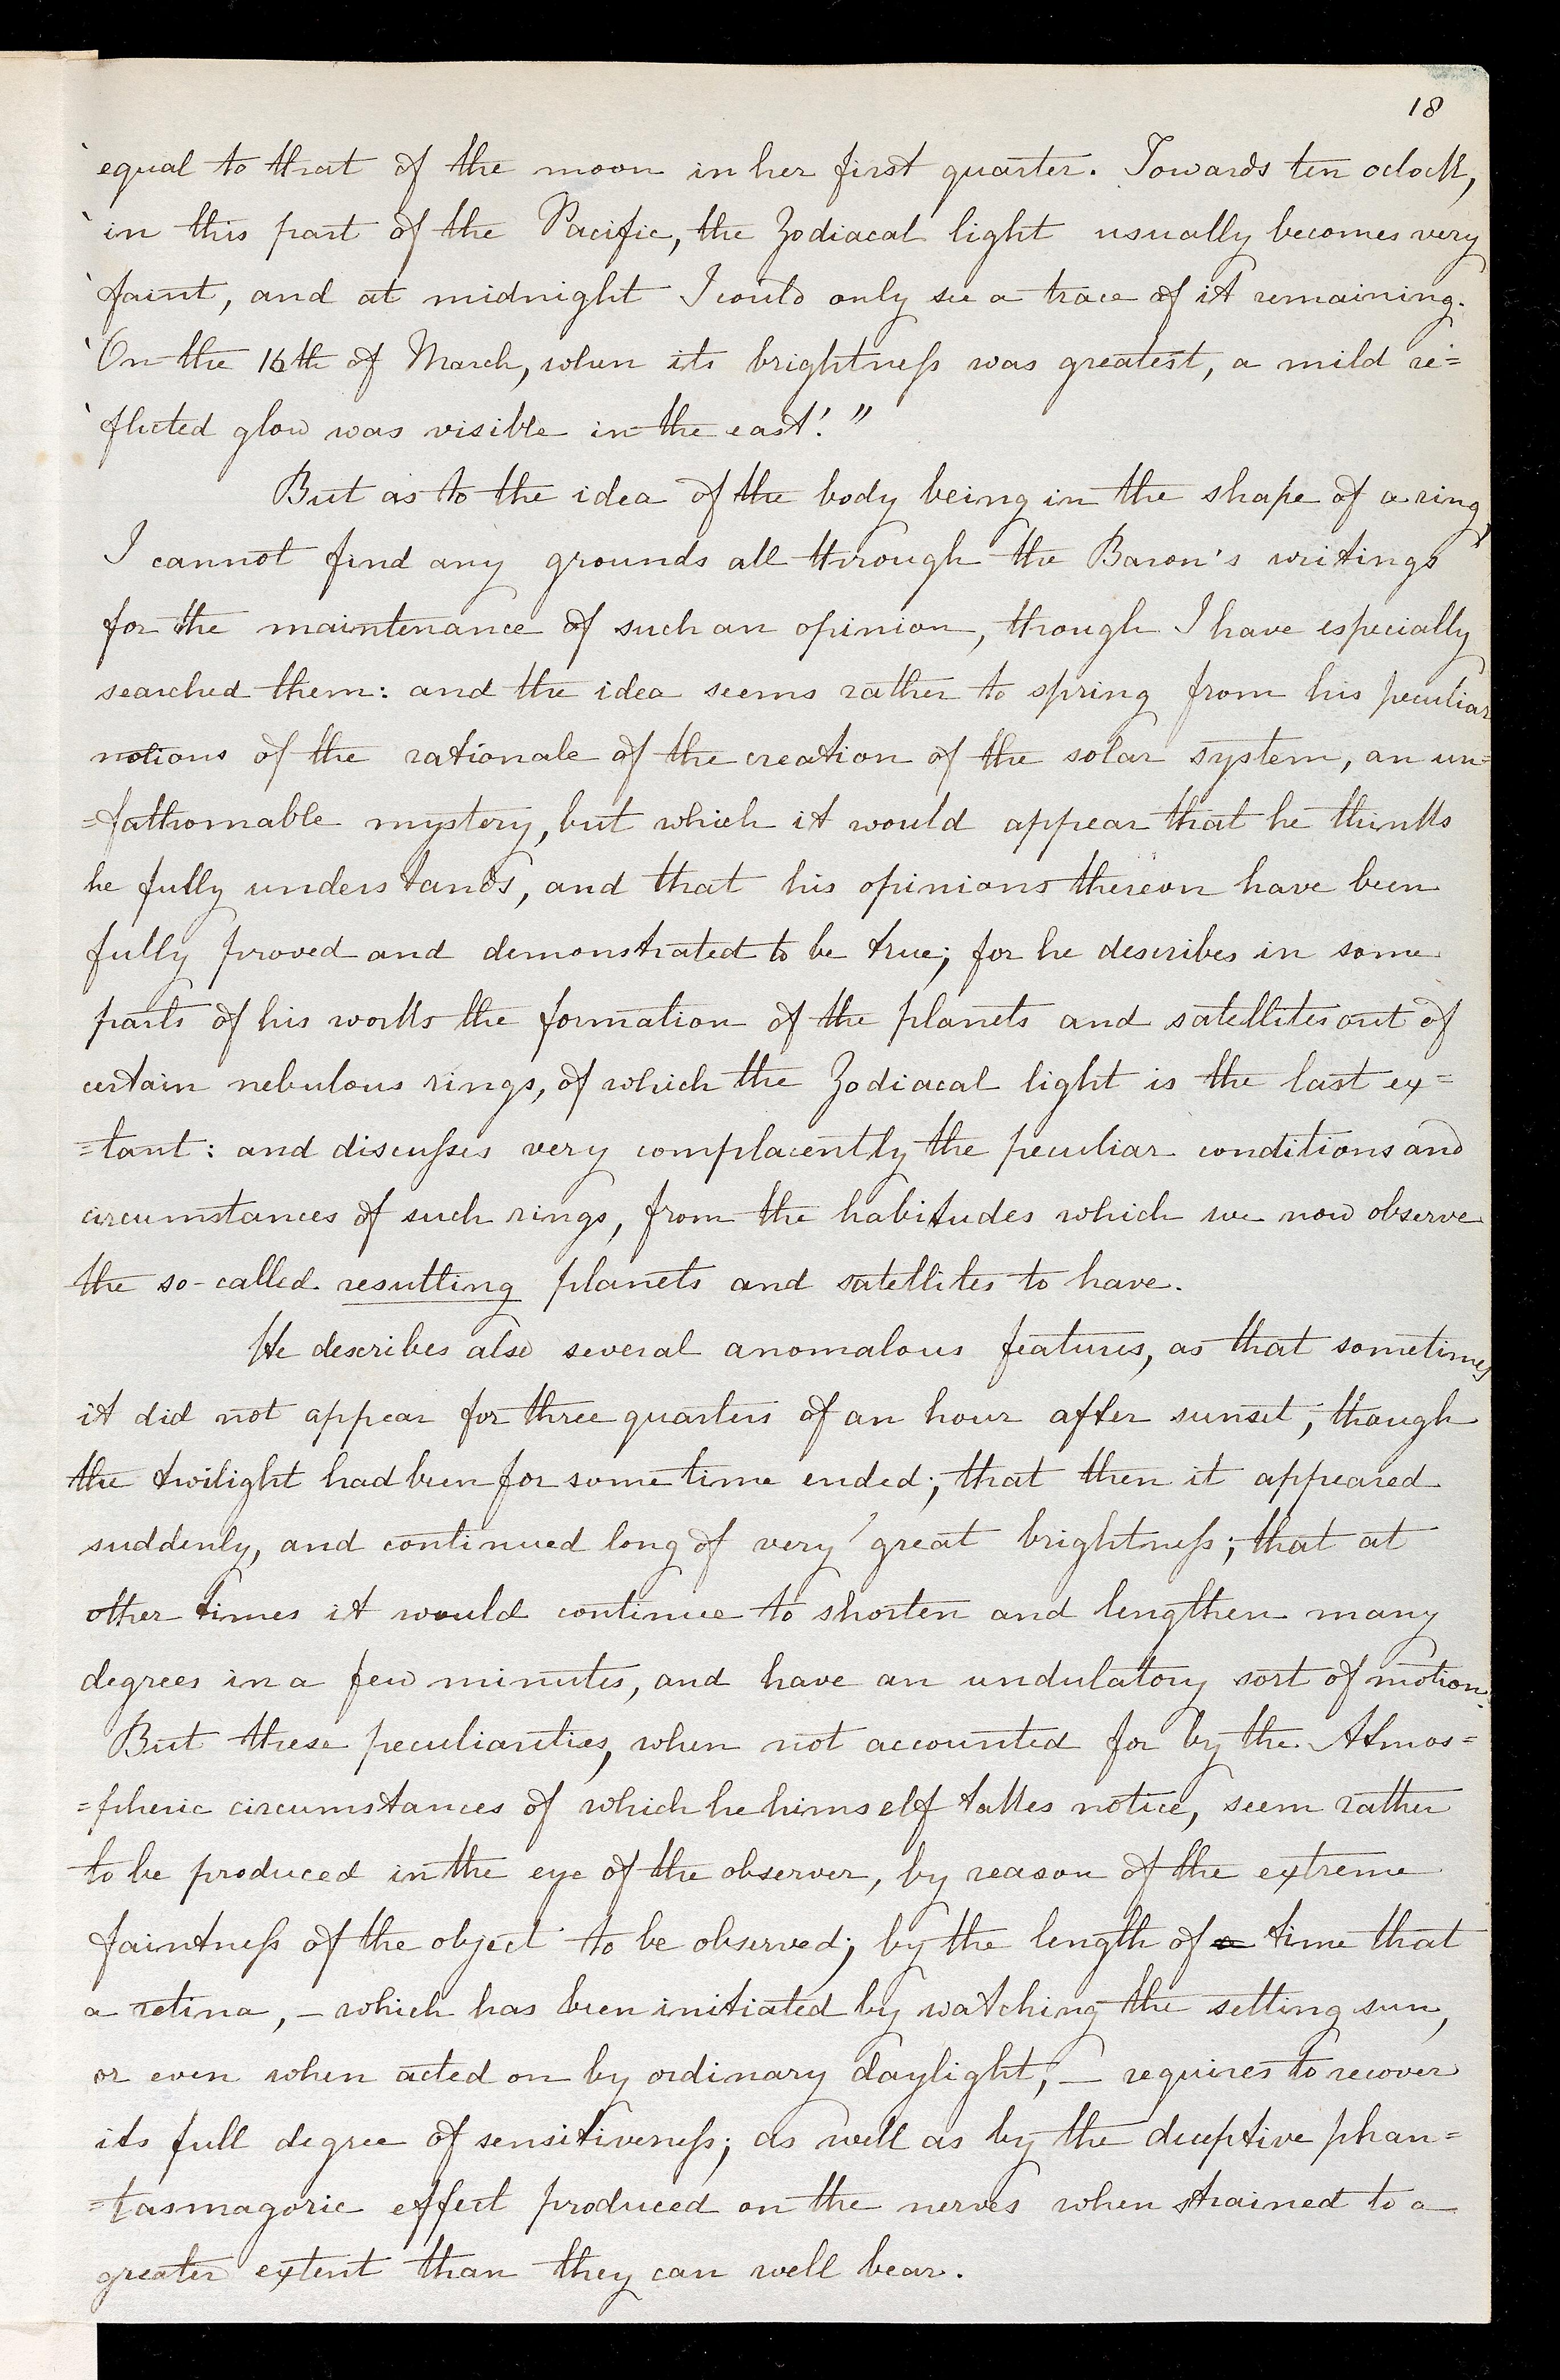 18
‘equal to that of the moon in her first quarter. Towards ten oclock,
‘in this part of the Pacific, the Zodiacal light usually becomes very
‘faint, and at midnight I could only see a trace of it remaining.
‘On the 16th of March, when its brightneſs was greatest, a mild re=
‘flected glow was visible in the east’.”
But as to the idea of the body being in the shape of a ring,
I cannot find any grounds all through the Baron's writings
for the maintenance of such an opinion, though I have especially
searched them: and the idea seems rather to spring from his peculiar
notions of the rationale of the creation of the solar system, an un=
=fathomable mystery, but which it would appear that he thinks
he fully understands, and that his opinions thereon have been
fully proved and demonstrated to be true; for he describes in some
parts of his works the formation of the planets and satellites out of
certain nebulous rings, of which the Zodiacal light is the last ex=
=tant: and discuſses very complacently the peculiar conditions and
circumstances of such rings, from the habitudes which we now observe
the so-called resulting planets and satellites to have.
He describes also several anomalous features, as that sometimes
it did not appear for three quarters of an hour after sunset; though
the twilight had been for some time ended; that then it appeared
suddenly, and continued long of very great brightneſs; that at
other times it would continue to shorten and lengthen many
degrees in a few minutes, and have an undulatory sort of motion.
But these peculiarities, when not accounted for by the Atmos=
=pheric circumstances of which he himself takes notice, seem rather
to be produced in the eye of the observer, by reason of the extreme
faintneſs of the object to be observed; by the length of a time that
a retina, – which has been initiated by watching the setting sun,
or even when acted on by ordinary daylight, – requires to recover
its full degree of sensitiveneſs; as well as by the deceptive phan=
=tasmagoric effect produced on the nerves when strained to a
greater extent than they can well bear.